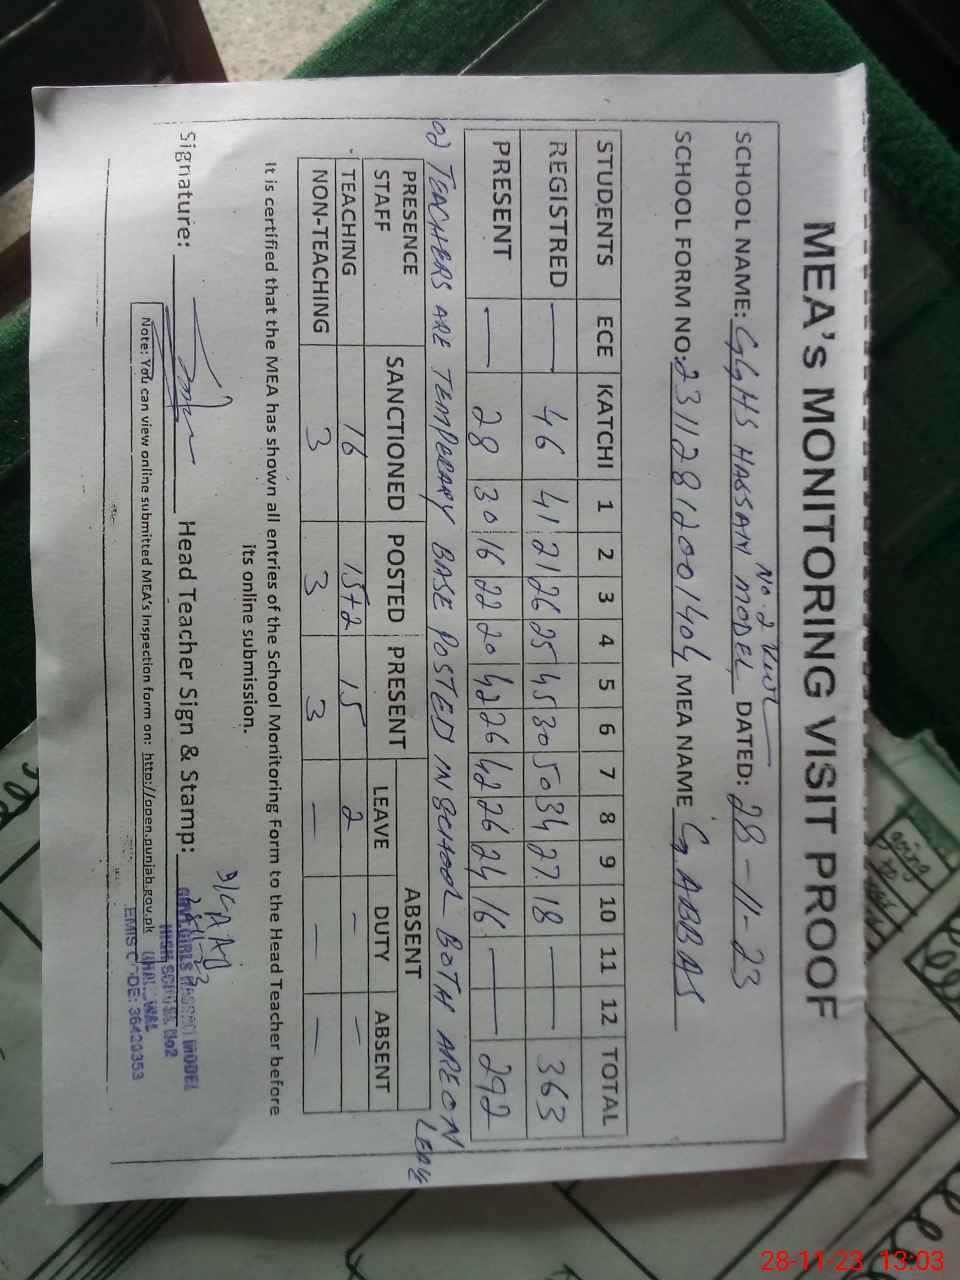 MEA's MONITORING VISIT PROOF
No.2
SCHOOL NAME: GGHS HASSAN MODEL DATED: 28-11-23
SCHOOL FORM NO: 23112812001404 MEA NAME G ABBAS
STUDENTS ECE KATCHI 1 2 3 4 5 6 7 8 9 10 11 12 TOTAL
REGISTRED — 46 41 21 26 25 45 30 50 34 27 18 — — 363
PRESENT — 28 30 16 22 20 42 26 42 26 24 16 — — 292
02 TEACHERS ARE TEMPERARY BASE POSTED IN SCHOOL BOTH ARE ON LEAV
PRESENCE STAFF SANCTIONED POSTED PRESENT ABSENT
LEAVE DUTY ABSENT
TEACHING 16 15+2 15 2 — —
NON-TEACHING 3 3 3 — — —
It is certified that the MEA has shown all entries of the School Monitoring Form to the Head Teacher before
its online submission.
Signature: Head Teacher Sign & Stamp:
GOVT.GIRLS HASSAN MODEL
HIGH SCHOOL No2
EMIS CODE: 36420353
Note: You can view online submitted MEA's Inspection form on: http://open.punjab.gov.pk
giving
28-11-23 13:03